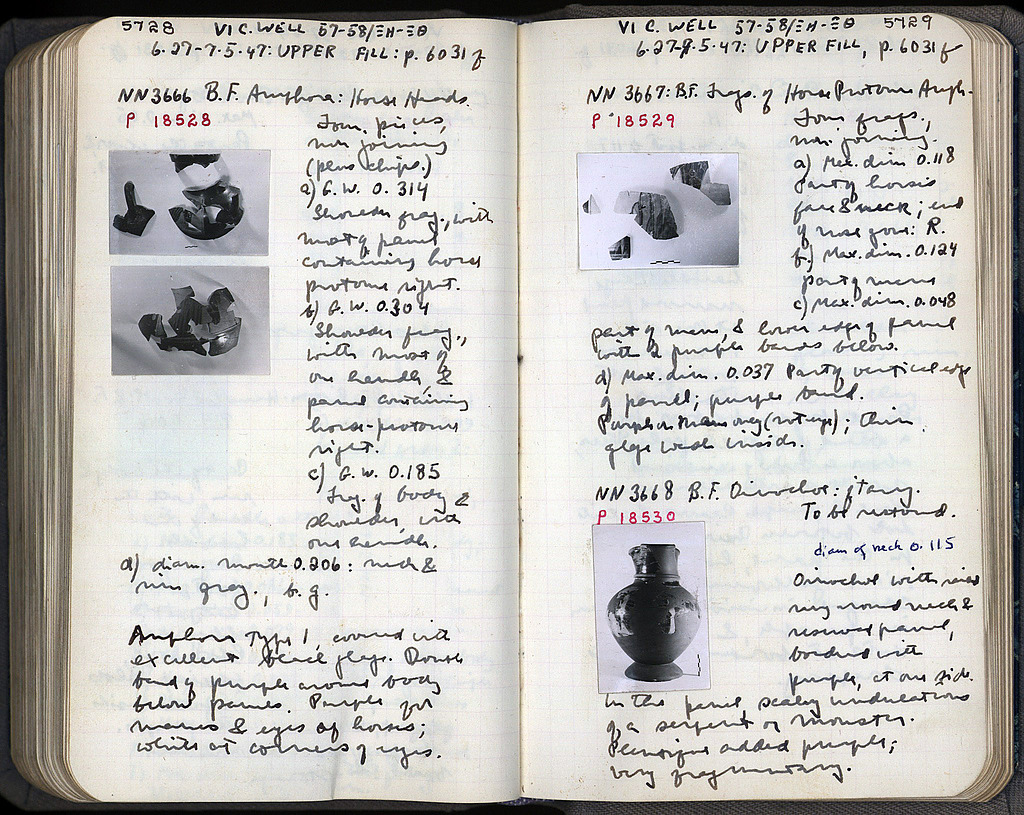 5728 VI C. WELL 57-58/ΞΗ-ΞΘ
6.27-7.5.47: UPPER FILL: p. 6031 f
NN 3666 B.F. Amphora: Horse Heads.
P 18528
Four pieces,
non joining
(plus chips.)
a) G.W. 0.314
Shoulder frag., with
most of panel
containing horse
protome right.
b) G.W. 0.304
Shoulder frag.,
with most of
one handle, &
panel containing
horse-protome
right.
c) G.W. 0.185
Frag. of body &
shoulder, with
one handle.
d) diam. mouth 0.206: neck &
rim frag., b.g.
Amphora Type 1, covered with
excellent black glaze. Double
band of purple around body
below panels. Purple for
manes & eyes of horses;
white at corners of eyes.
VI C. WELL 57-58/ΞΗ-ΞΘ 5729
6.27-7.5.47: UPPER FILL, p. 6031 f
NN 3667: B.F. Frags. of Horse Protome Amph.
P 18529
Four frags.,
non joining.
a) Max. dim. 0.118
Part of horse's
face & neck; end
of nose gone: R.
b) Max. dim. 0.124
part of mane
c) Max. dim. 0.048
part of mane, & lower edge of panel
with 2 purple bands below.
d) Max. dim. 0.037 Part of vertical edge
of panel; purple band.
Purple on mane only (not eye); thin
glaze wash inside.
NN 3668 B.F. Oinochoe: frag.
P 18530
To be restored.
diam of neck 0.115
Oinochoe with raised
ring round neck &
reserved panel,
bordered with
purple, at one side.
In the panel scaley undulations
of a serpent or monster.
added purple;
very fragmentary.